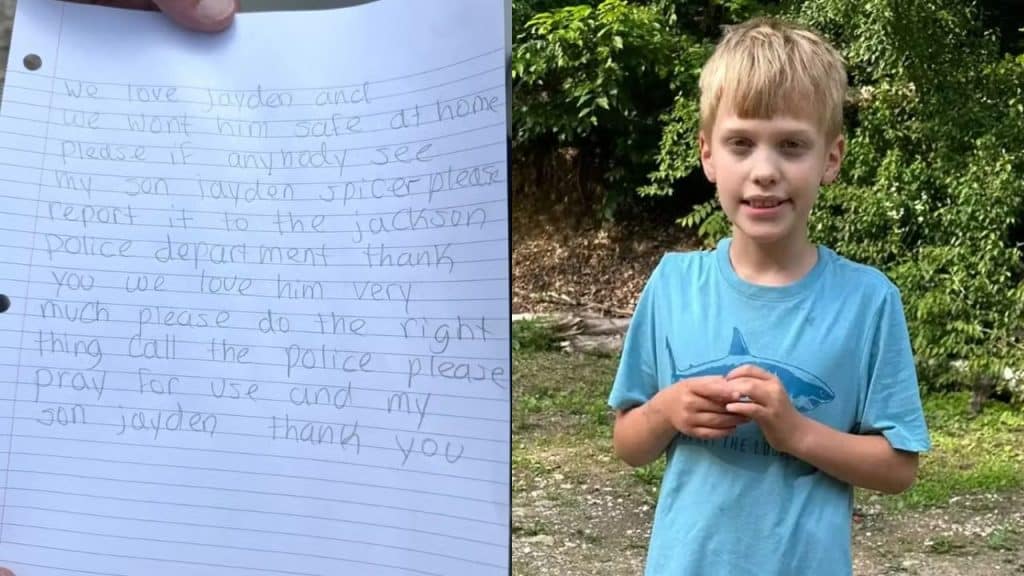 we love jayden and
we want him safe at home
please if anybody see
my son jayden spicer please
report it to the jackson
police department thank
you we love him very
much please do the right
thing call the police please
pray for use and my
son jayden thank you
THE LOU